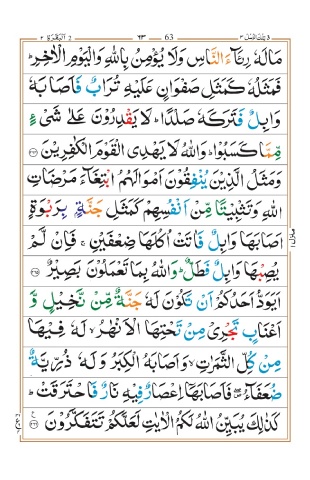 تلك الرسل ٣ ٦٣ 63 البقرة ٢ 2
مَالَهٗ رِئَآءَ النَّاسِ وَلَا يُؤْمِنُ بِاللّٰهِ وَالْيَوْمِ الْاٰخِرِ ؕ
فَمَثَلُهٗ كَمَثَلِ صَفْوَانٍ عَلَيْهِ تُرَابٌ فَاَصَابَهٗ
وَابِلٌ فَتَرَكَهٗ صَلْدًا ؕ لَا يَقْدِرُوْنَ عَلٰى شَىْءٍ
مِّمَّا كَسَبُوْا ؕ وَاللّٰهُ لَا يَهْدِى الْقَوْمَ الْكٰفِرِيْنَ ﴿۲۶۴﴾
وَمَثَلُ الَّذِيْنَ يُنْفِقُوْنَ اَمْوَالَهُمُ ابْتِغَآءَ مَرْضَاتِ
اللّٰهِ وَتَثْبِيْتًا مِّنْ اَنْفُسِهِمْ كَمَثَلِ جَنَّةٍۭ بِرَبْوَةٍ
اَصَابَهَا وَابِلٌ فَاٰتَتْ اُكُلَهَا ضِعْفَيْنِ ۚ فَاِنْ لَّمْ
يُصِبْهَا وَابِلٌ فَطَلٌّ ؕ وَاللّٰهُ بِمَا تَعْمَلُوْنَ بَصِيْرٌ ﴿۲۶۵﴾
اَيَوَدُّ اَحَدُكُمْ اَنْ تَكُوْنَ لَهٗ جَنَّةٌ مِّنْ نَّخِيْلٍ وَّ
اَعْنَابٍ تَجْرِىْ مِنْ تَحْتِهَا الْاَنْهٰرُ ۙ لَهٗ فِيْهَا
مِنْ كُلِّ الثَّمَرٰتِ ۙ وَاَصَابَهُ الْكِبَرُ وَلَهٗ ذُرِّيَّةٌ
ضُعَفَآءُ ۖ فَاَصَابَهَاۤ اِعْصَارٌ فِيْهِ نَارٌ فَاحْتَرَقَتْ ؕ
كَذٰلِكَ يُبَيِّنُ اللّٰهُ لَكُمُ الْاٰيٰتِ لَعَلَّكُمْ تَتَفَكَّرُوْنَ ﴿۲۶۶﴾
منزل ١